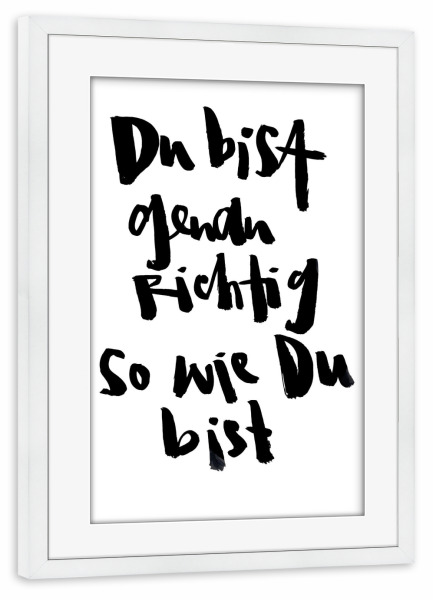 Du bist
genau
Richtig
so wie Du
bist